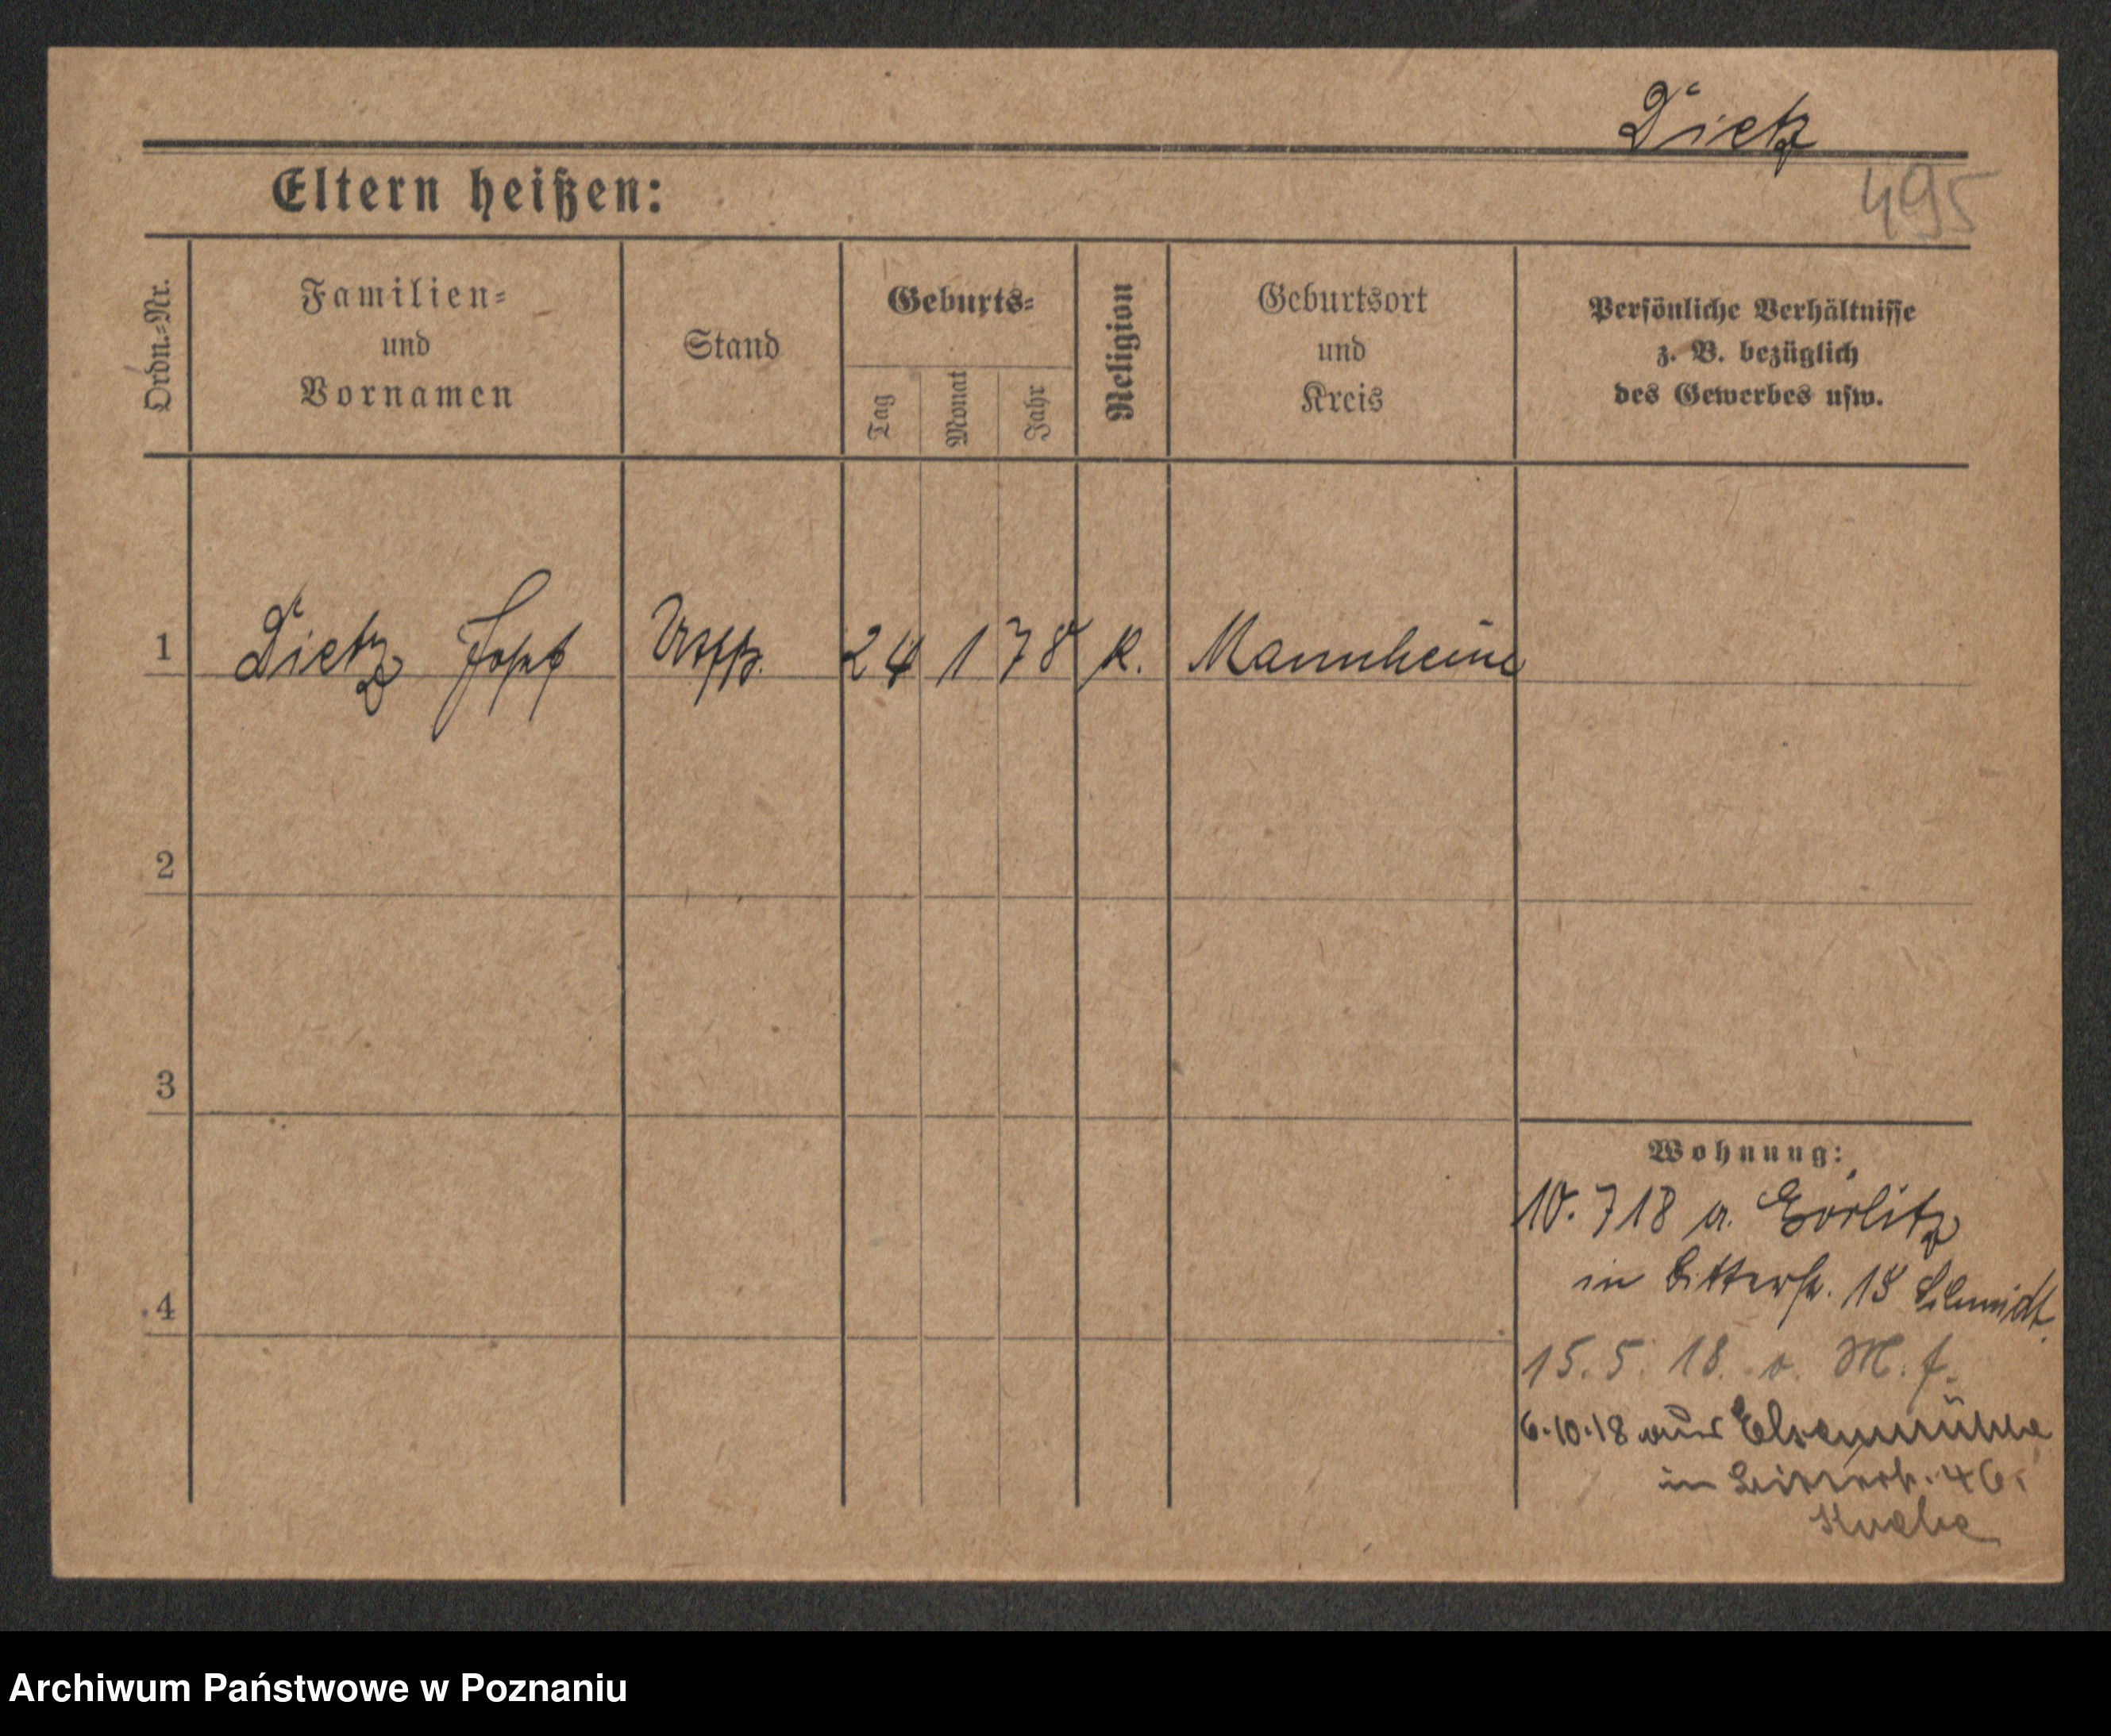 Dietz
495
Eltern heißen:
Ordn.-Nr.
Familien-
und
Vornamen
Stand
Geburts-
Tag
Monat
Jahr
Religion
Geburtsort
und
Kreis
Persönliche Verhältnisse
z. B. bezüglich
des Gewerbes usw.
1 Dietz Josef 24 1 78 k. Mannheim
2
3
4
Wohnung:
10. 7 18 a. Görlitz
in Bitterstr. 15 Schmidt
15. 5. 18. v. M. f.
6.10.18 aus Elsenmühle
in 46.